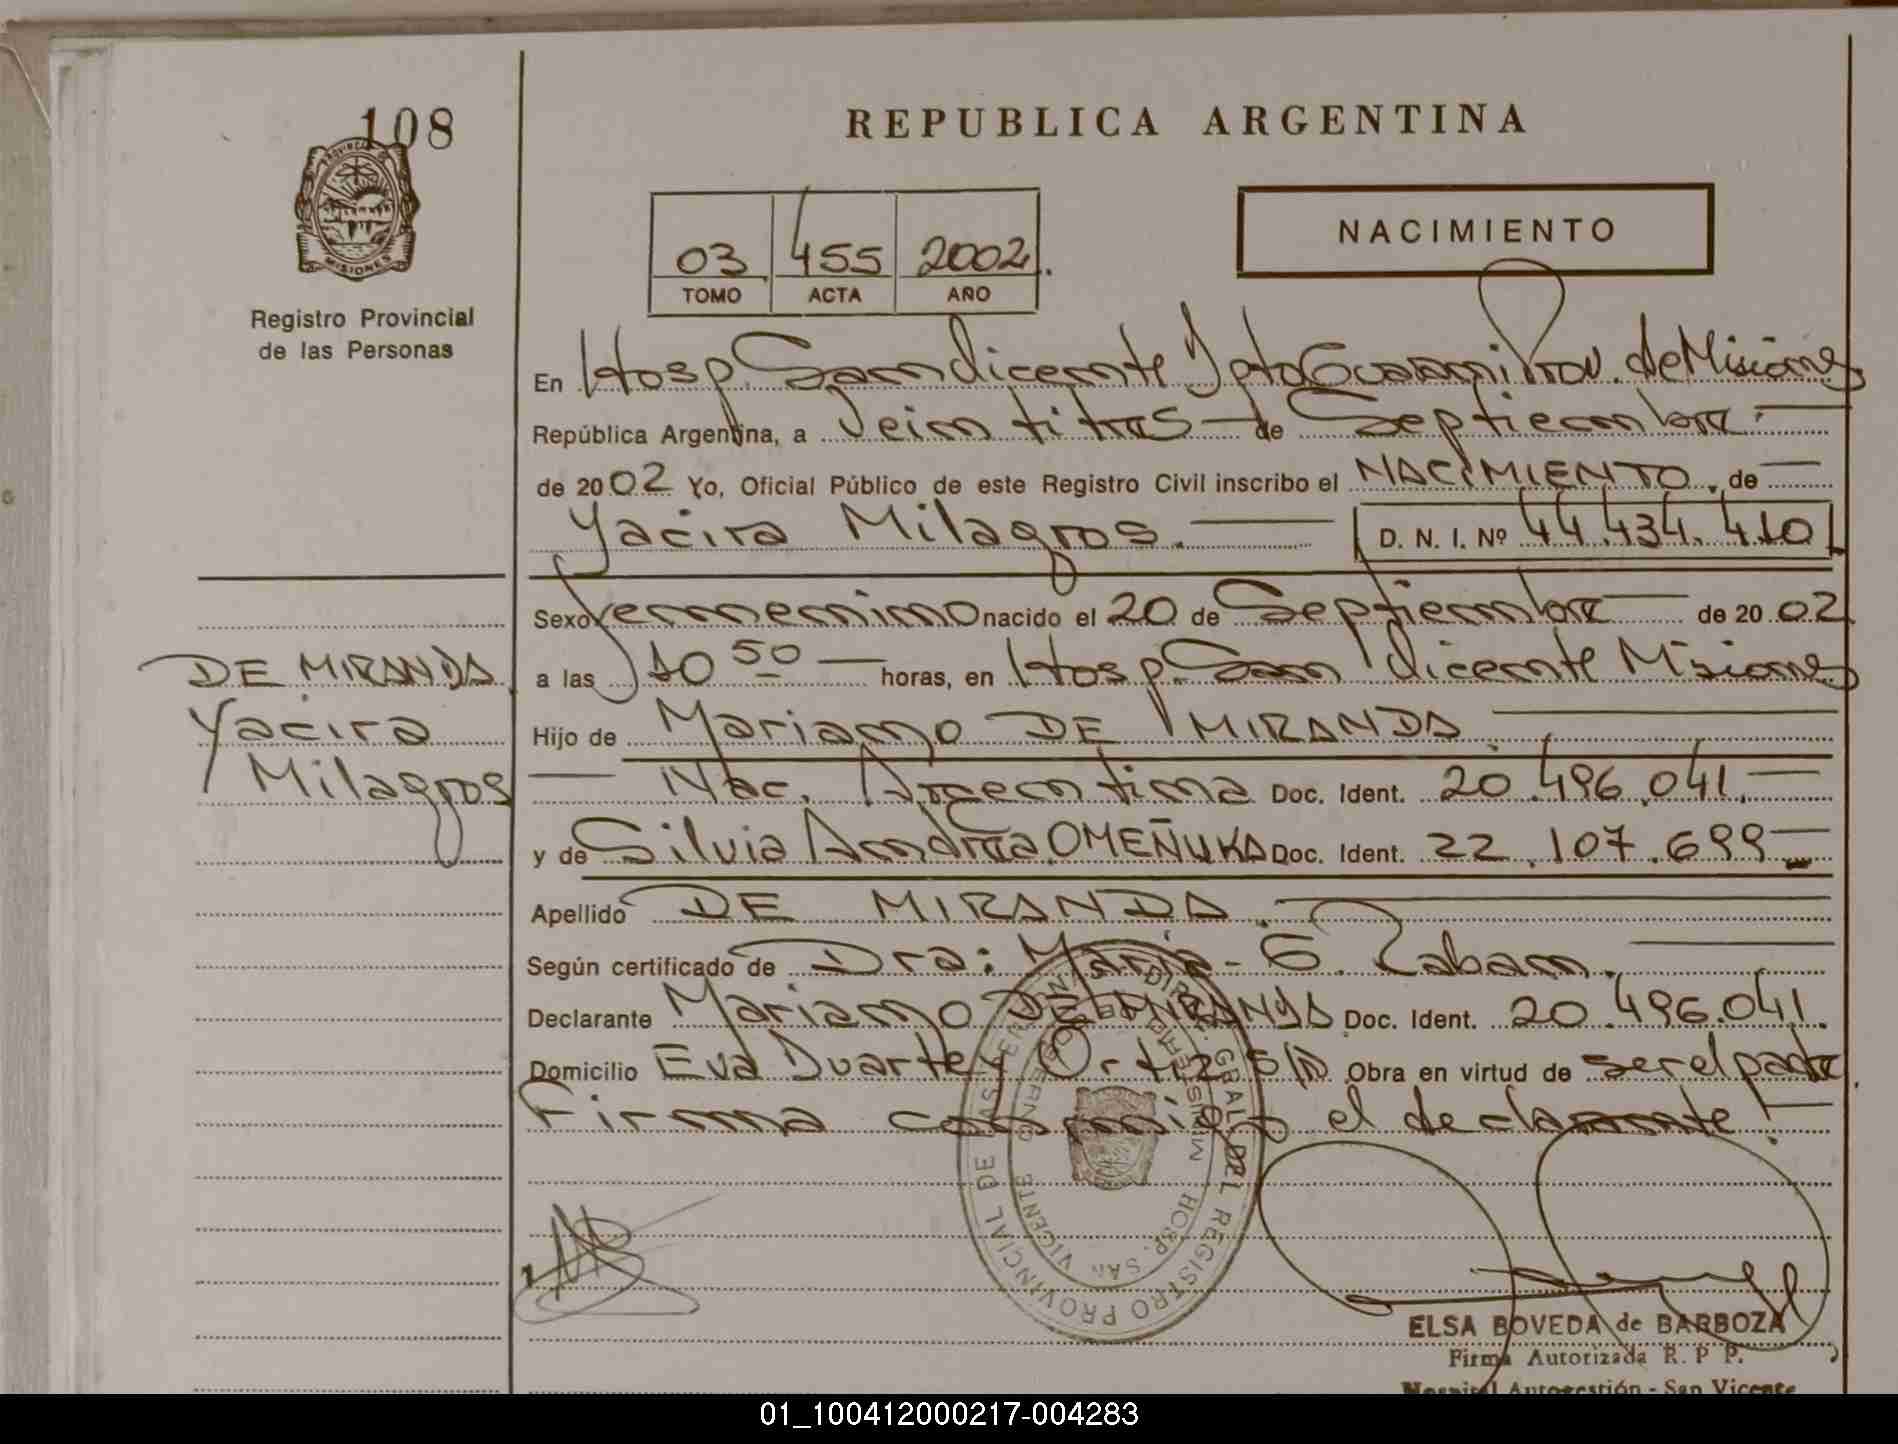 108
PROVINCIA DE
MISIONES
Registro Provincial
de las Personas
REPUBLICA ARGENTINA
03 455 2002.
TOMO ACTA AÑO
NACIMIENTO
En Hosp. San Vicente Dpto Guarani Prov. de Misiones
República Argentina, a Veintitres de Septiembre.
de 2002 Yo, Oficial Público de este Registro Civil inscribo el NACIMIENTO. de
Yacira Milagros. D. N. I. Nº 44.434.410
Sexo Femenino nacido el 20 de Septiembre de 2002
a las 10 50 horas, en Hosp. San Vicente Misiones
Hijo de Mariano DE MIRANDA.
Nac. Argentina Doc. Ident. 20.496.041.
y de Silvia Andrea OMEÑUKA Doc. Ident. 22.107.699
Apellido DE MIRANDA.
Según certificado de Dra: Maria E. Zaban.
Declarante Mariano DE MIRANDA Doc. Ident. 20.496.041.
Domicilio Eva Duarte y Ortiz S/N Obra en virtud de ser el padre.
Firma conmigo el declarante!
DE MIRANDA
Yacira
Milagros
DIR. GRAL. DEL REGISTRO PROVINCIAL DE LAS PERSONAS
MINISTERIO DE GOBIERNO
HOSP. SAN VICENTE
ELSA BOVEDA de BARBOZA
Firma Autorizada R. P P.
Hospital Autogestión - San Vicente
01_100412000217-004283